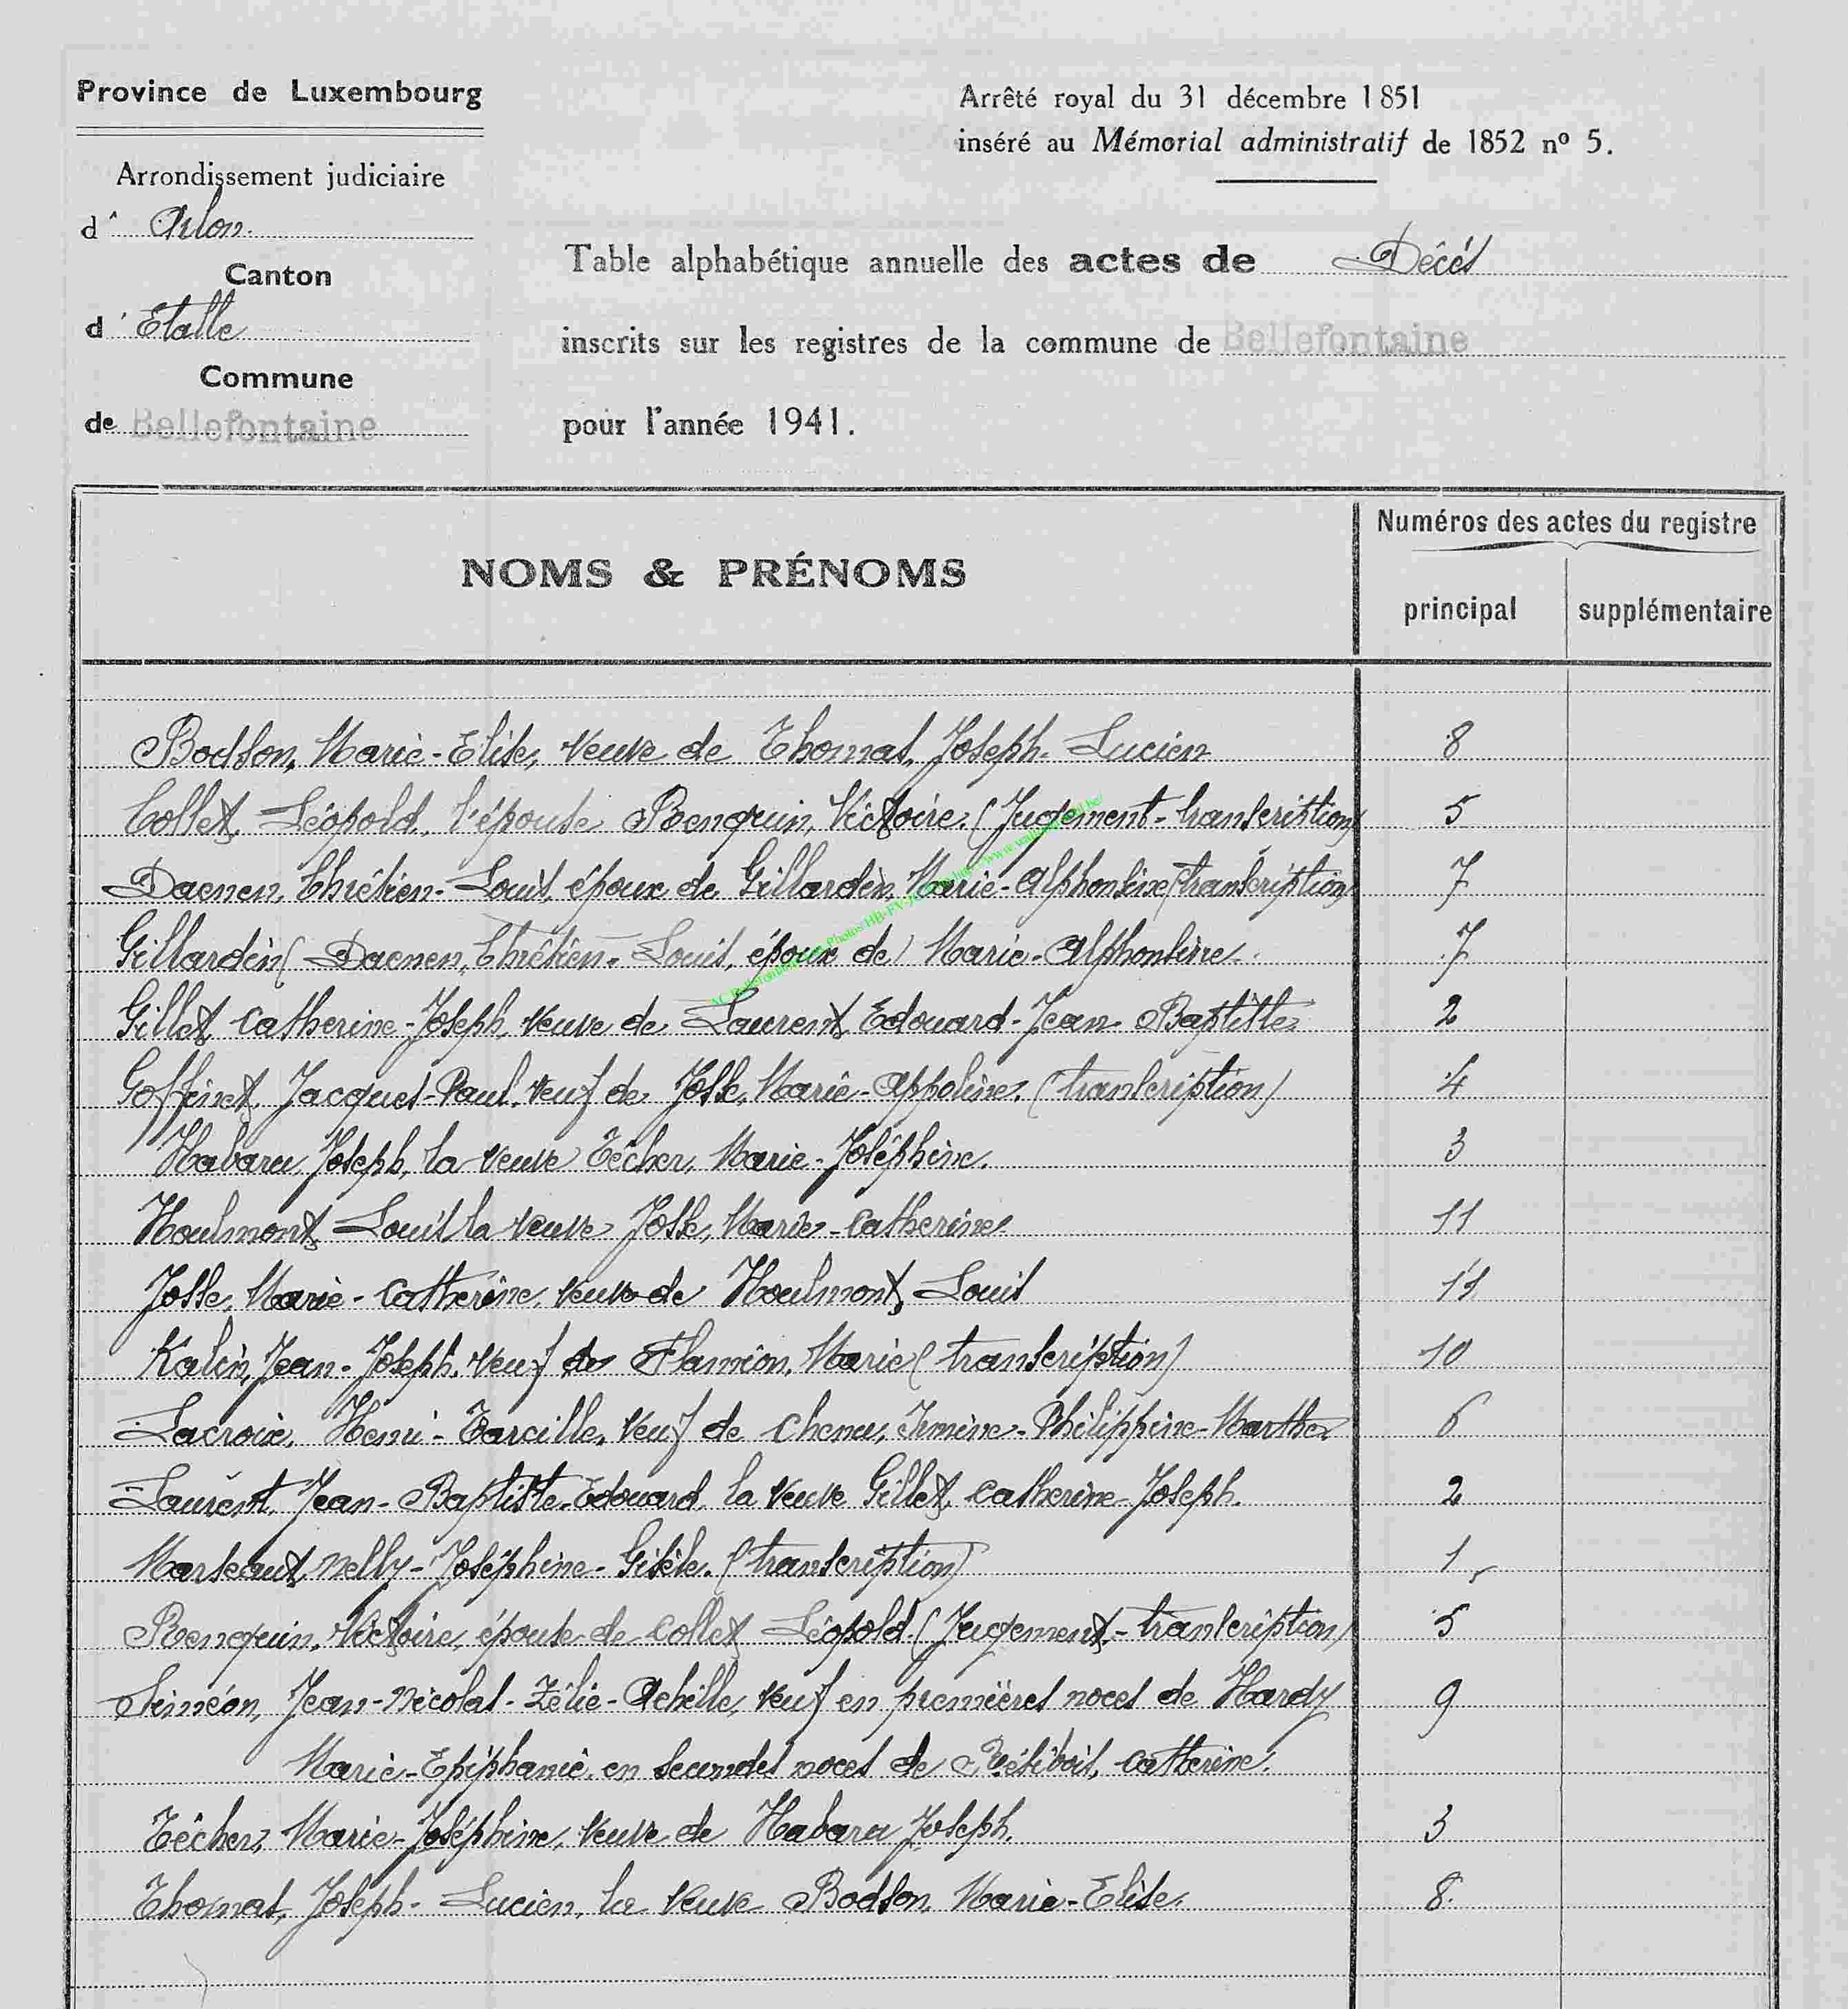 Province de Luxembourg
Arrêté royal du 31 décembre 1851
inséré au Mémorial administratif de 1852 nº 5.
Arrondissement judiciaire
d' Arlon
Canton
d' Etalle
Commune
de Bellefontaine
Table alphabétique annuelle des actes de Décès
inscrits sur les registres de la commune de Bellefontaine
pour l'année 1941.
NOMS & PRÉNOMS
Numéros des actes du registre
principal supplémentaire
Bodson, Marie-Elise, veuve de Thomas, Joseph-Lucien 8
Collet, Léopold, l'épouse Renquin, Victoire. (Jugement-transcription) 5
Daenen, Chrétien-Louis, époux de Gillardin, Marie-Alphonsine (transcription) 7
Gillardin (Daenen, Chrétien-Louis, époux de) Marie-Alphonsine 7
Gillet, Catherine-Joseph, veuve de Laurent, Edouard-Jean-Baptiste 2
Goffinet, Jacques-Paul, veuf de Josse, Marie-Appoline. (transcription) 4
Habaru Joseph, la veuve Técher, Marie-Joséphine. 3
Houlmont, Louis la veuve Josse, Marie-Catherine 11
Josse, Marie-Catherine, veuve de Houlmont, Louis 11
Kalin, Jean-Joseph, veuf de Flamion, Marie (transcription) 10
Lacroix, Henri-Tarcille, veuf de Chenu, Irmine-Philippine-Marthe 6
Laurent, Jean-Baptiste-Edouard, la veuve Gillet, Catherine-Joseph. 2
Marseaut, Nelly-Joséphine-Gisèle. (transcription) 1
Renquin, Victoire, épouse de Collet Léopold. (Jugement-transcription) 5
Siméon, Jean-Nicolas-Zélie-Achille, veuf en premières noces de Hardy 9
Marie-Epiphanie, en secondes noces de Catherine.
Técher, Marie-Joséphine, veuve de Habaru Joseph. 3
Thomas, Joseph-Lucien, la veuve Bodson, Marie-Elise. 8